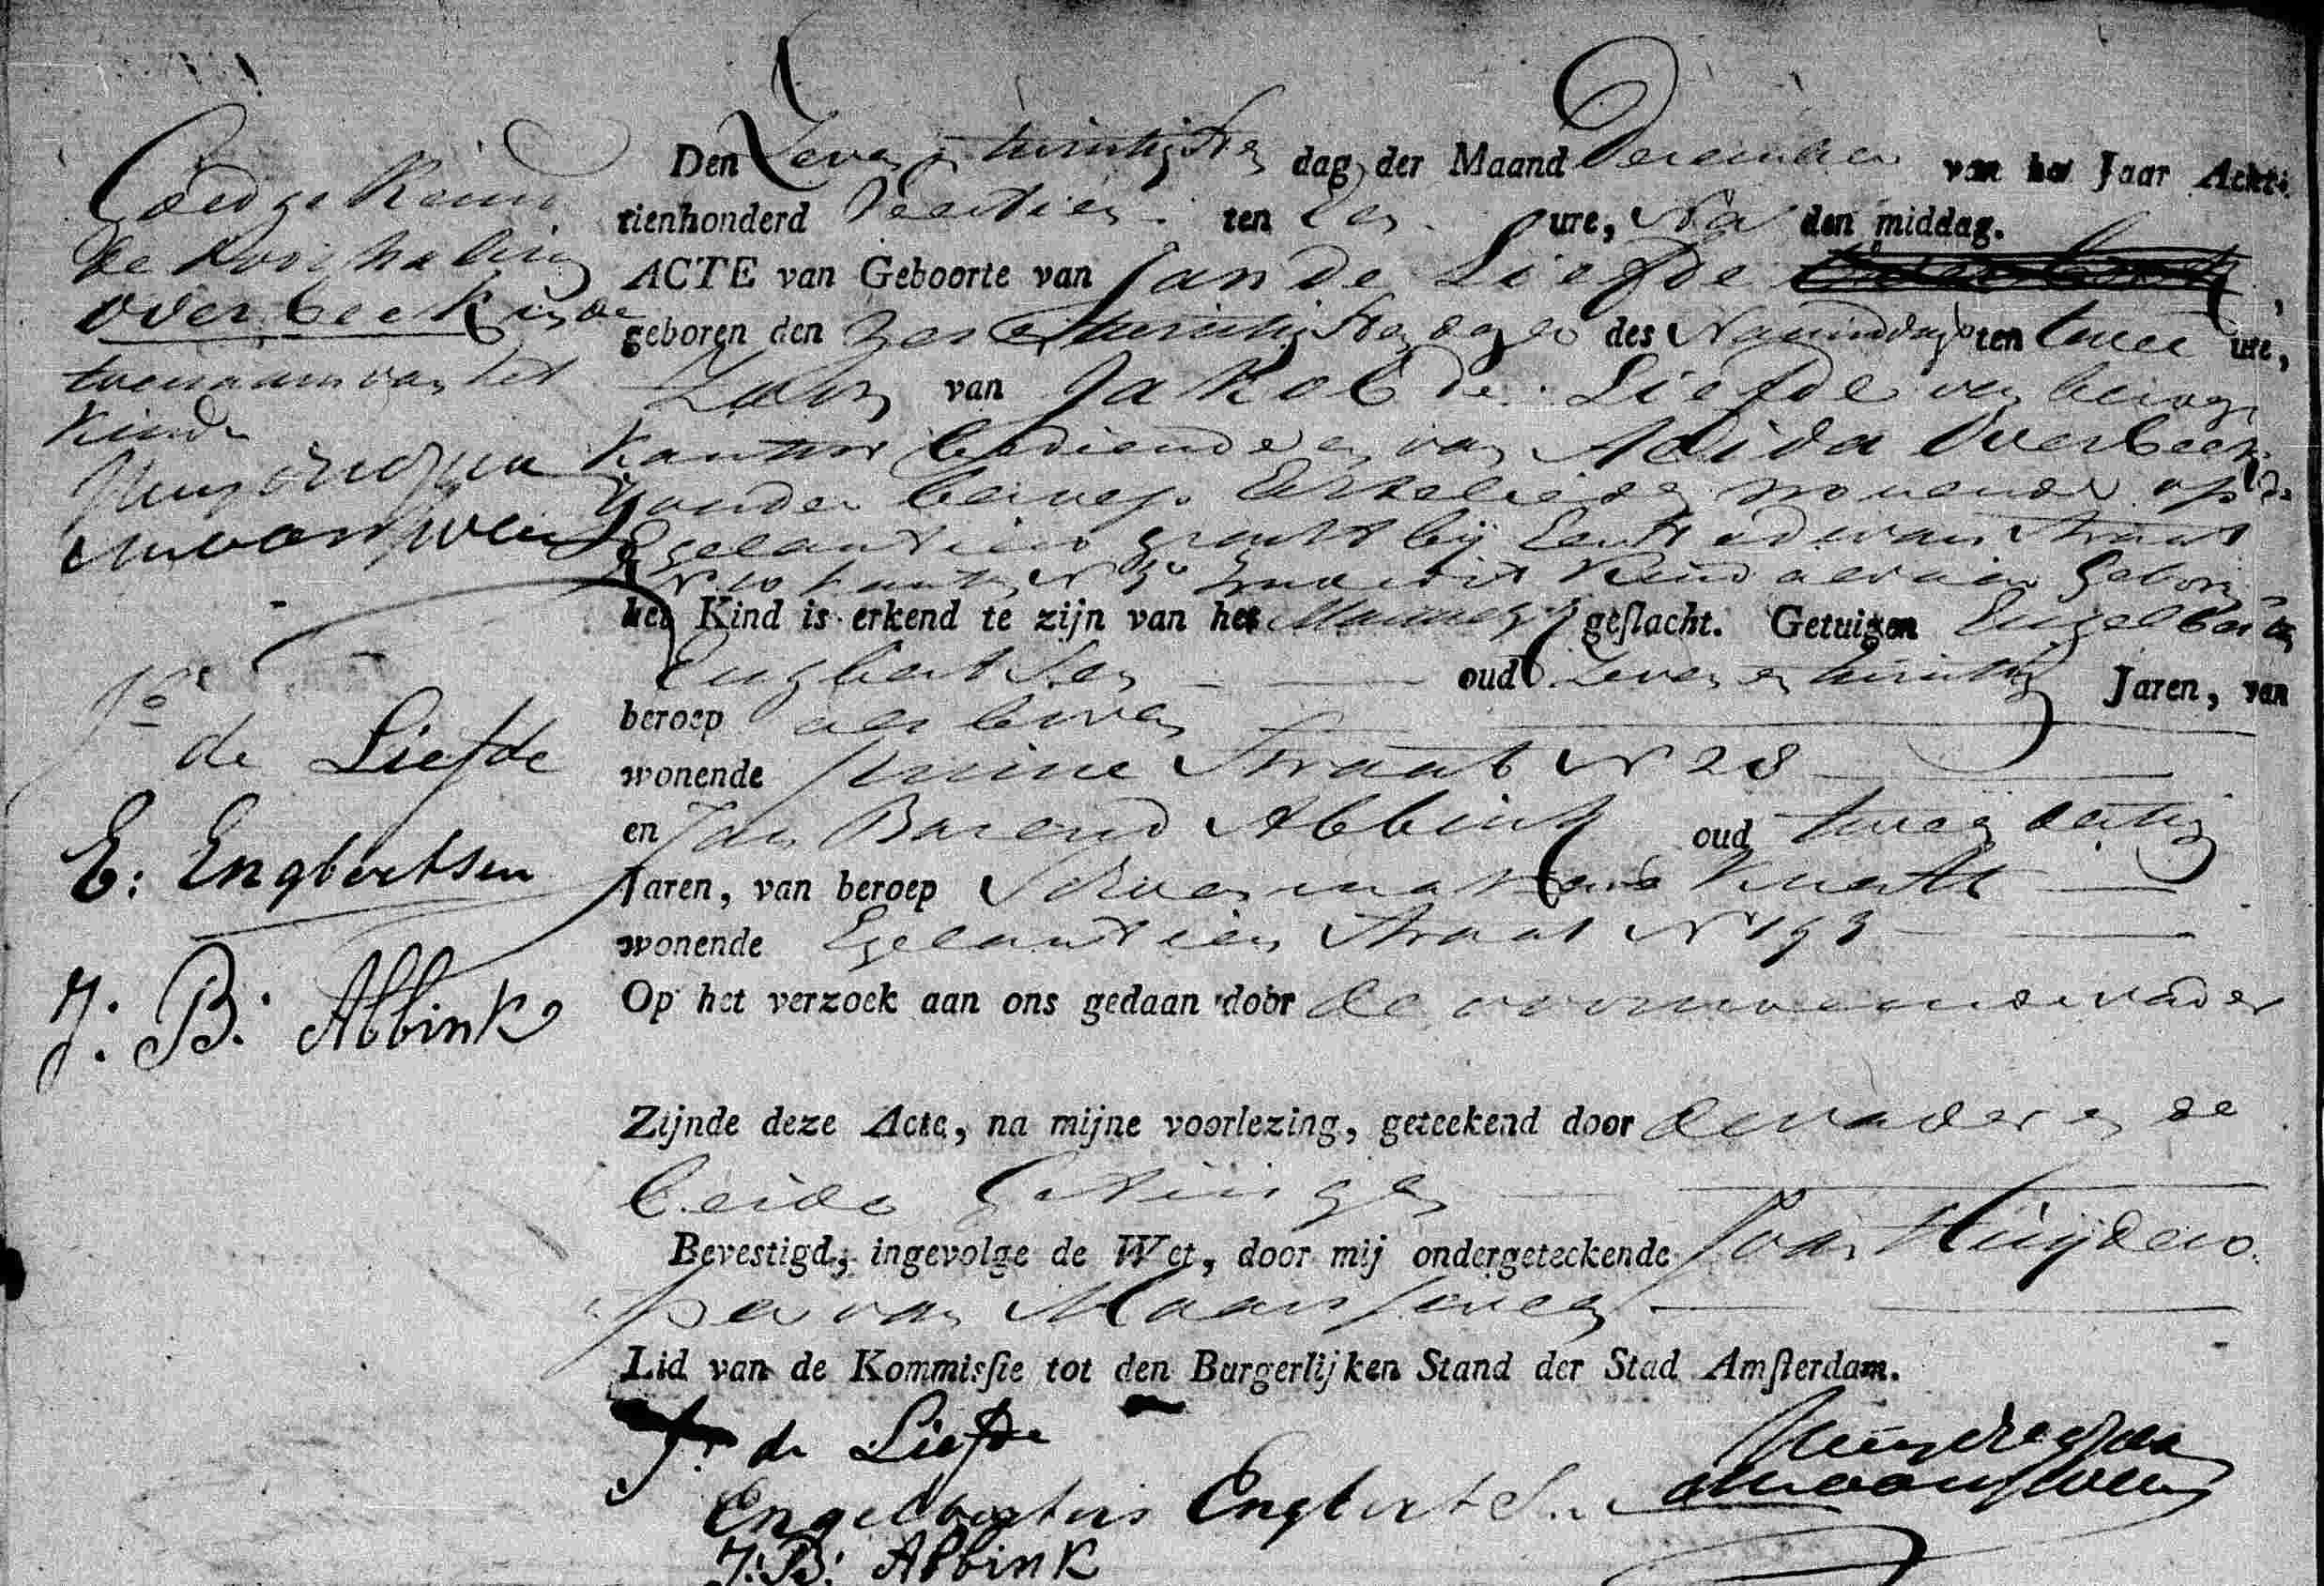 Goedgekeurd
de doorhaling
overbeek in de
toenaam van het
Kind
Den Zeven & twintigsten dag der Maand December van het Jaar Acht-
tienhonderd Veertien ten een ure, Na den middag.
ACTE van Geboorte van Jan de Liefde
geboren den Zes & twintigsten dezer des Namiddags ten twee ure,
Zoon van Jakob de Liefde van beroep
Kantoor bediende en van Alida Overbeek
zonder beroep Echtelieden wonende op de
Egelantiers gracht bij Eerste dwars straat
het Kind is erkend te zijn van het Mannelijk geslacht. Getuigen Engelbartus
Engbertsen oud Zeven en twintig Jaren, van
beroep als boven
wonende Pruime Straat N 28
en Jan Barend Abbink oud twee en dertig
Jaren, van beroep Schoenmakers Knecht
wonende Egelantiers Straat N 193
Op het verzoek aan ons gedaan door de voornoemde vader
Zijnde deze Acte, na mijne voorlezing, geteekend door de vader en de
beide Getuigen
Bevestigd, ingevolge de Wet, door mij ondergeteekende Joan Huijdeco
per van Maarsseveen
Lid van de Kommissie tot den Burgerlijken Stand der Stad Amsterdam.
de Liefde
E: Engbertsen
J: B: Abbink
J: de Liefde
Engelbartus Engbertsen
J: B: Abbink